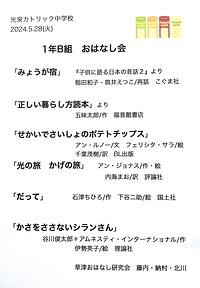 光泉カトリック中学校
2024.5.28(火)
1年B組　おはなし会
「みょうが宿」　『子供に語る日本の昔話2』より
稲田和子・筒井えつこ/再話　こぐま社
「正しい暮らし方読本」より
五味太郎/作　福音館書店
「せかいでさいしょのポテトチップス」
アン・ルノー/文　フェリシタ・サラ/絵
千葉茂樹/訳　BL出版
「光の旅　かげの旅」　アン・ジョナス/作・絵
内海まお/訳　評論社
「だって」　石津ちひろ/作　下谷二助/絵　国土社
「かさをささないシランさん」
谷川俊太郎+アムネスティ・インターナショナル/作
伊勢英子/絵　理論社
草津おはなし研究会　藤内・納村・北川